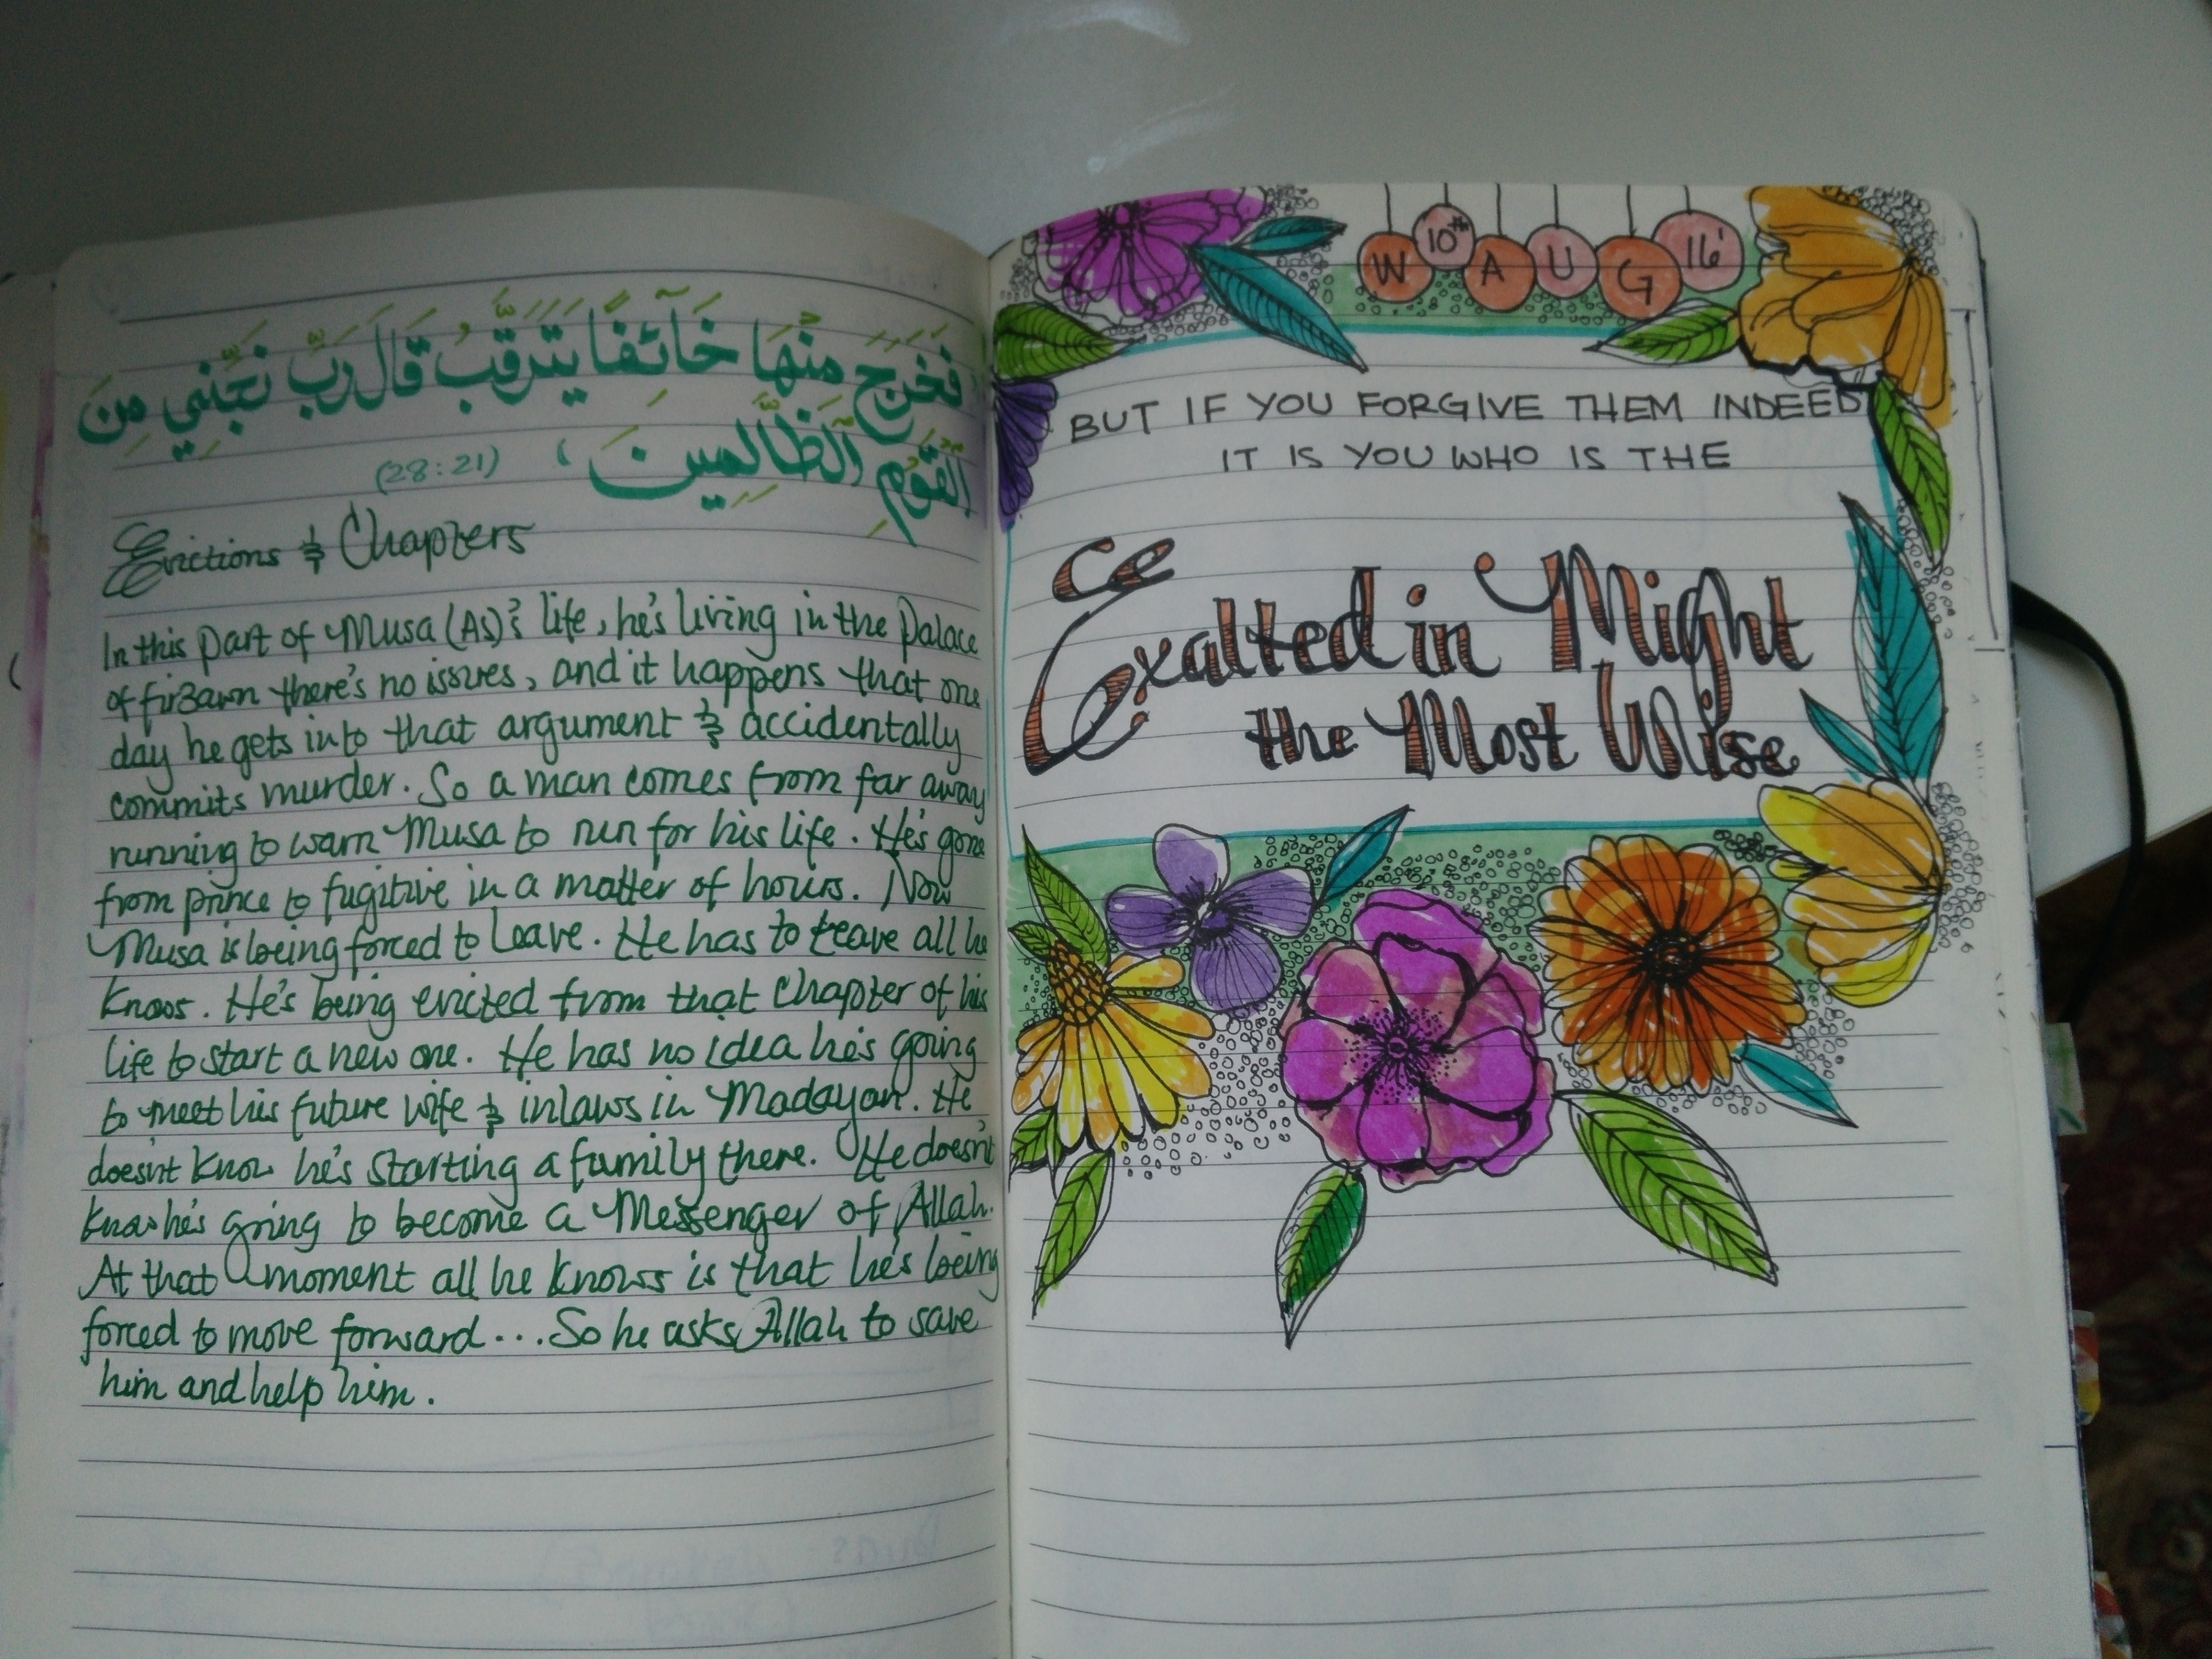 فَخَرَجَ مِنْهَا خَآئِفًا يَتَرَقَّبُ قَالَ رَبِّ نَجِّنِي مِنَ
الْقَوْمِ الظَّالِمِينَ ، (28:21)
Evictions & Chapters
In this part of Musa (AS)'s life, he's living in the Palace
of fir3awn there's no issues, and it happens that one
day he gets into that argument & accidentally
commits murder. So a man comes from far away
running to warn Musa to run for his life. He's gone
from prince to fugitive in a matter of hours. Now
Musa is being forced to leave. He has to leave all he
knows. He's being evicted from that chapter of his
life to start a new one. He has no idea he's going
to meet his future wife & inlaws in Madayan. He
doesn't know he's starting a family there. He doesn't
know he's going to become a Messenger of Allah.
At that moment all he knows is that he's being
forced to move forward... So he asks Allah to save
him and help him.
W 10th A U G 16'
BUT IF YOU FORGIVE THEM INDEED
IT IS YOU WHO IS THE
Exalted in Might
the Most Wise